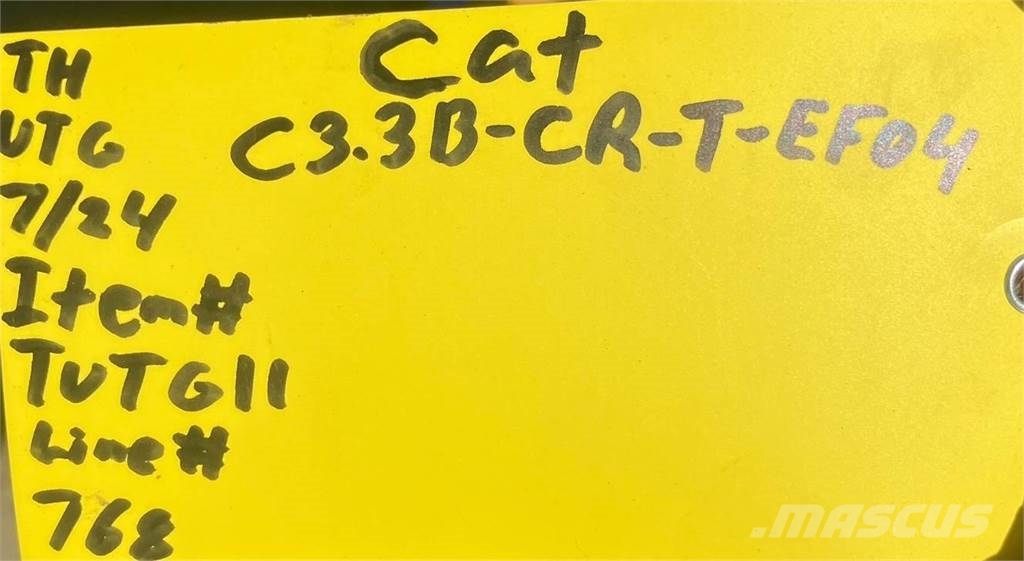 TH
UTG
7/24
Item#
TUTG11
Line#
768
Cat
C3.3B-CR-T-EF04
.MASCUS